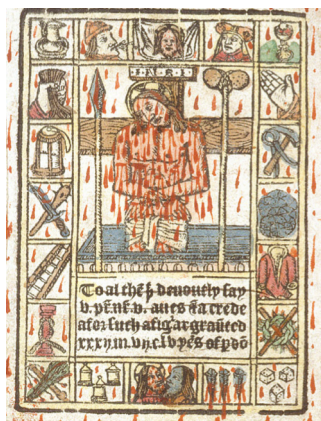 ·I·N·R·I·
To al thē þ deuoutly say
v. pr̄. nr̄. v. aues ⁊ a crede
afor ſuch a figur ar graūted
xxxij.m.vij.c.lv yēs of pdō